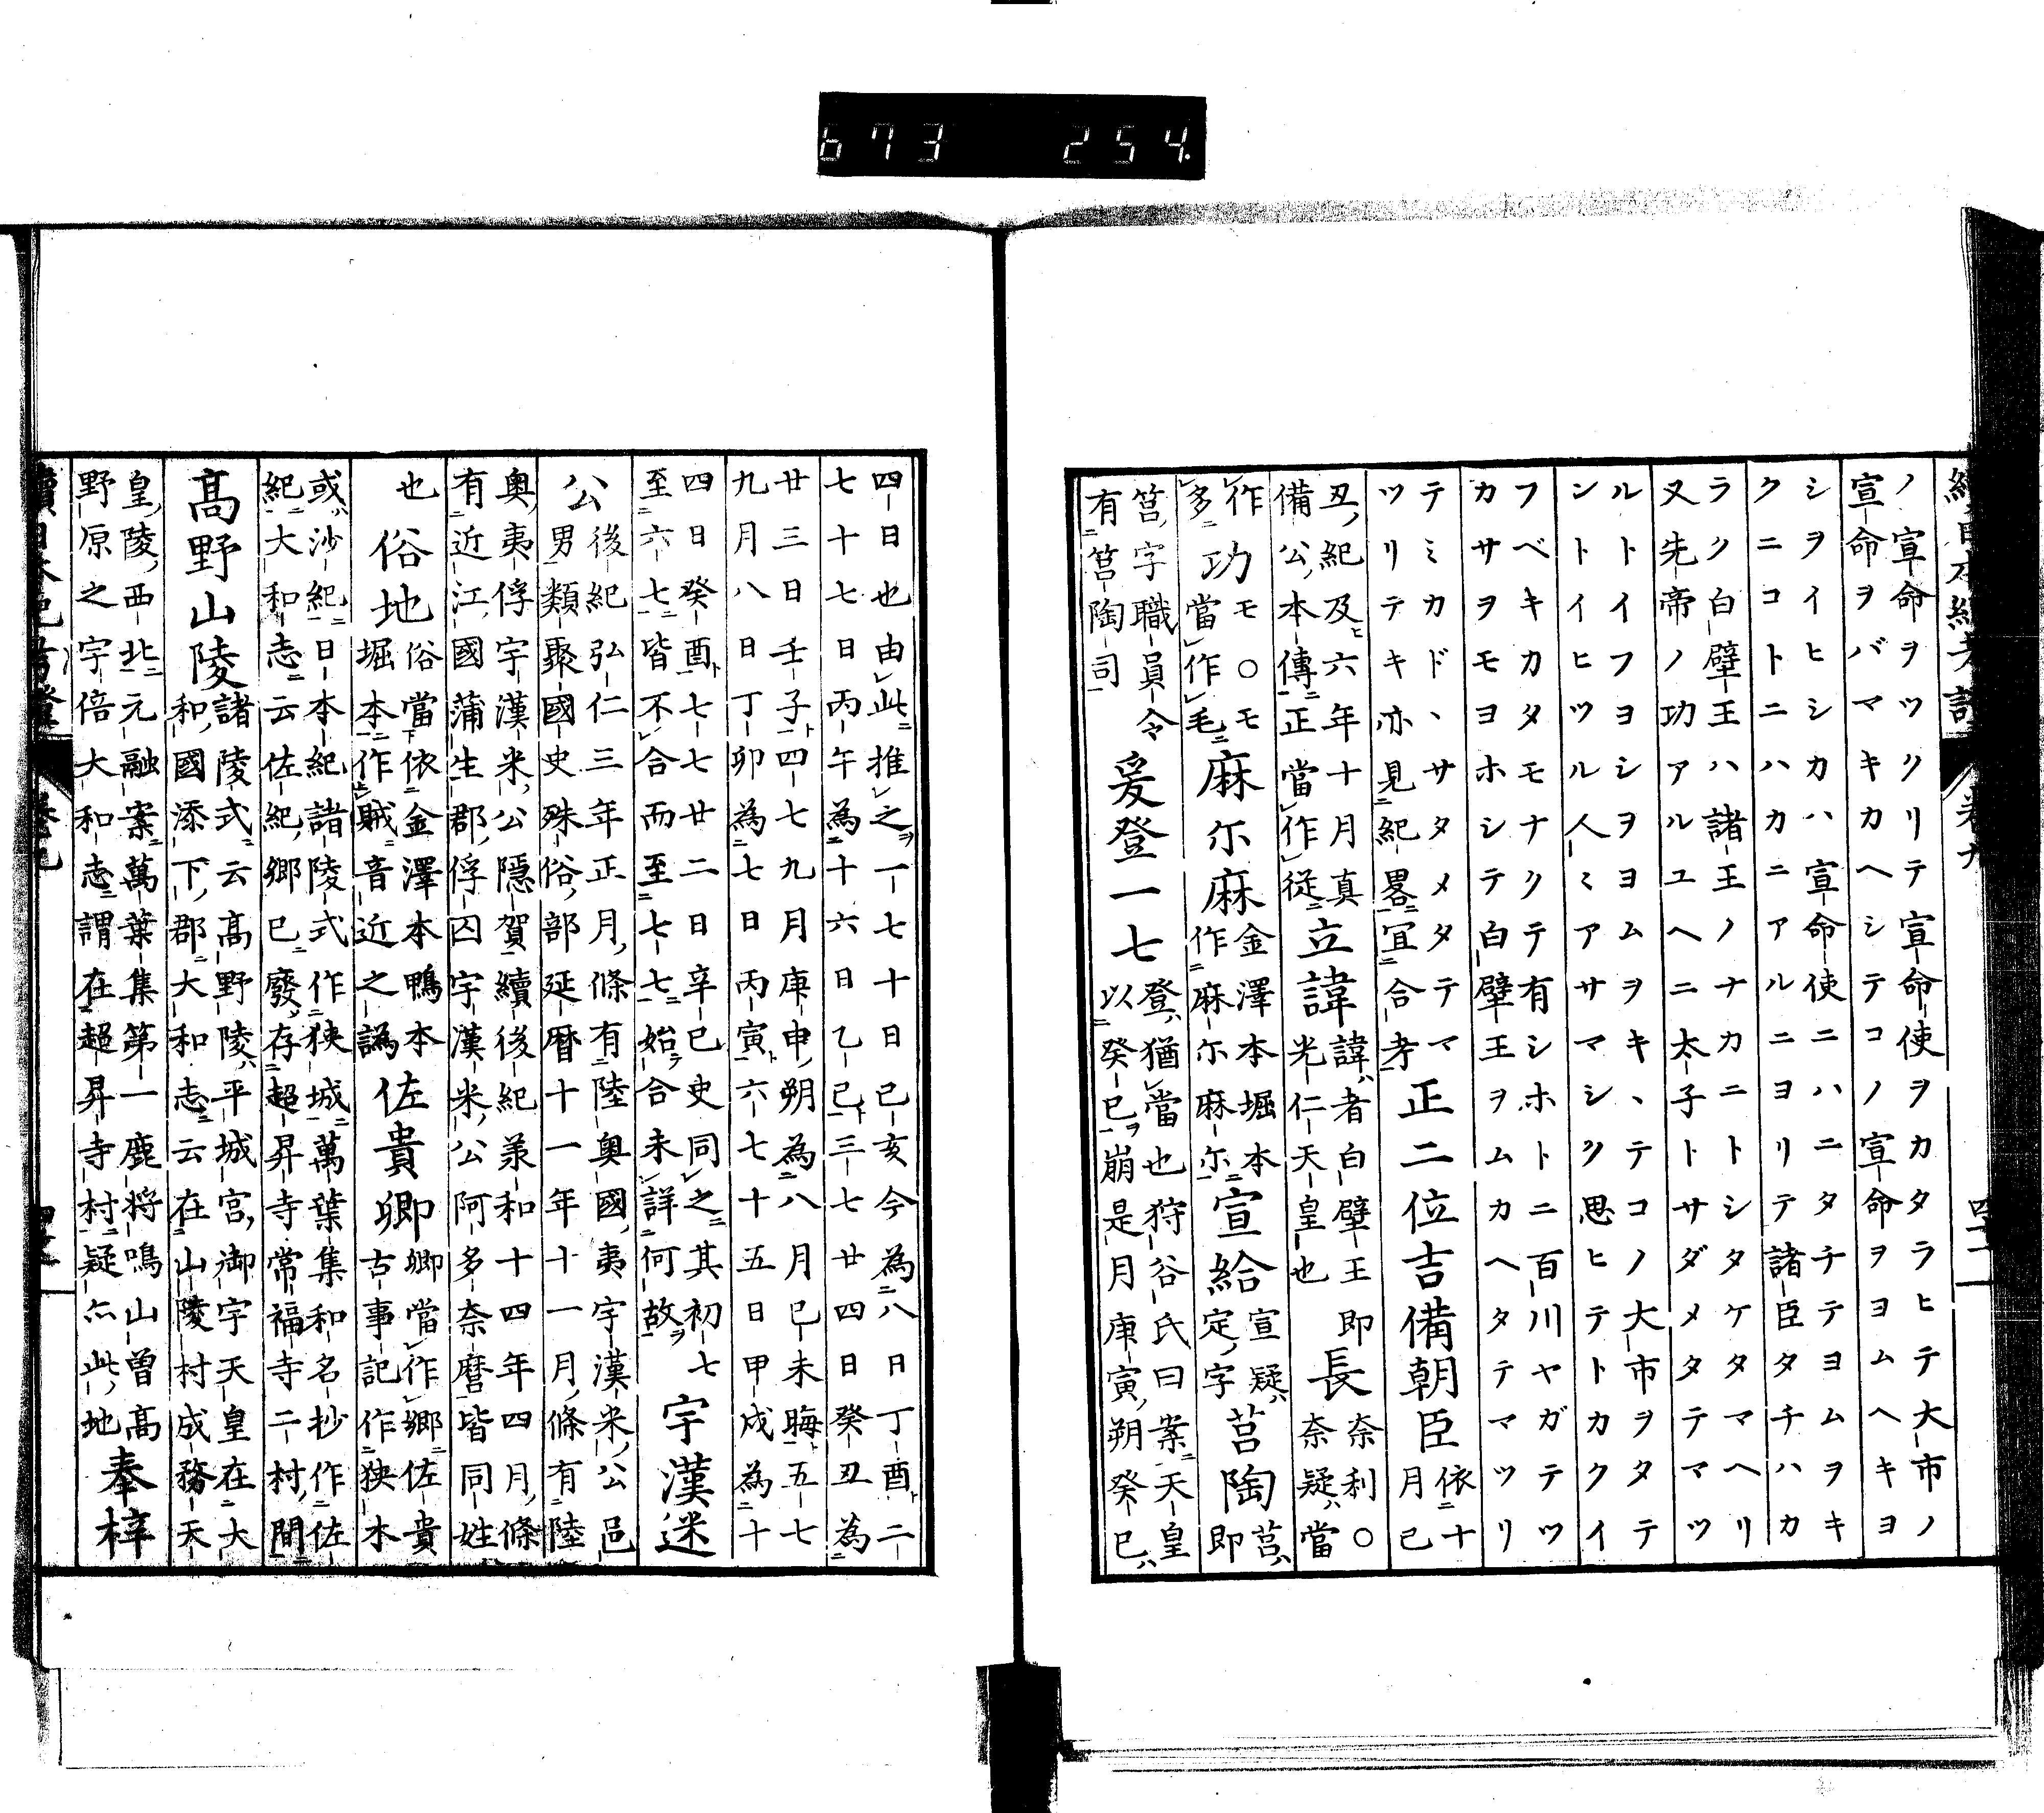 673 254.
ノ宣命ヲツクリテ宣命使ヲカタラヒテ大市ノ
宣命ヲバマキカヘシテコノ宣命ヲヨムヘキヨ
シヲイヒシカハ宣命使ニハニタチテヨムヲキ
クニコトニハカニアルニヨリテ諸臣タチハカ
ラク白壁王ハ諸王ノナカニトシタケタマヘリ
又先帝ノ功アルユヘニ太子トサダメタテマツ
ルトイフヨシヲヨムヲキヽテコノ大市ヲタテ
ントイヒツル人ミアサマシク思ヒテトカクイ
フベキカタモナクテ有シホトニ百川ヤガテツ
カサヲモヨホシテ白壁王ヲムカヘタテマツリ
テミカドヽサタメタテマ
ツリテキ亦見紀畧宜合考
正二位吉備朝臣
依十
月己
丑紀及六年十月真
備公本傳正當作従
立諱
諱者白壁王即
光仁天皇也
長
奈利〇
奈疑當
作功モ〇モ
多當作毛
麻尓麻
金澤本堀本
作麻尓麻尓
宣給
宣疑
定字
莒陶
莒
即
筥字職員令
有筥陶司
爰登一七
登猶當也狩谷氏曰案天皇
以癸巳崩是月庚寅朔癸巳
四日也由此推之一七十日己亥今為八日丁酉二
七十七日丙午為十六日乙巳三七廿四日癸丑為
廿三日壬子四七九月庚申朔為八月己未晦五七
九月八日丁卯為七日丙寅六七十五日甲戌為十
四日癸酉七七廿二日辛巳史同之其初七
至六七皆不合而至七七始合未詳何故
宇漢迷
公
後紀弘仁三年正月條有陸奧國夷宇漢米公邑
男類聚國史殊俗部延暦十一年十一月條有陸
奧夷俘宇漢米公隱賀續後紀羕和十四年四月條
有近江國蒲生郡俘囚宇漢米公阿多奈麿皆同姓
也
俗地
俗當依金澤本鴨本
堀本作賊音近之譌
佐貴卿
卿當作郷佐貴
古事記作狹木
或沙紀日本紀諸陵式作狹城萬葉集和名抄作佐
紀大和志云佐紀郷已廢存超昇寺常福寺二村間
高野山陵
諸陵式云高野陵平城宮御宇天皇在大
和國添下郡大和志云在山陵村成務天
皇陵西北元融案萬葉集第一鹿將鳴山曽高
野原之宇倍大和志謂在超昇寺村疑亦此地
奉梓